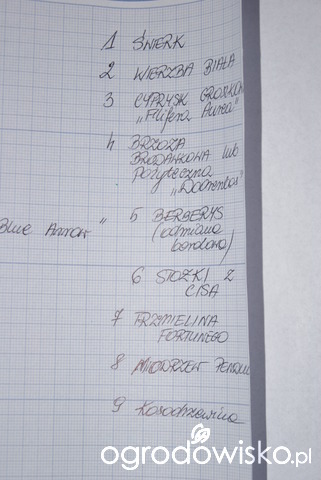 1 ŚWIERK
2 WIERZBA BIAŁA
3 CYPRYSIK GROSZKOW
"Filifera Aurea"
4 BRZOZA
BRODAWKOWA lub
Pożyteczna
"Doorenbos"
Blue Arrow"
5 BERBERYS
(odmiana
bordowa)
6 STOŻKI Z
CISA
7 TRZMIELINA
FORTUNEGO
8 MIŁORZĄB
9 Kosodrzewina
ogrodowisko.pl